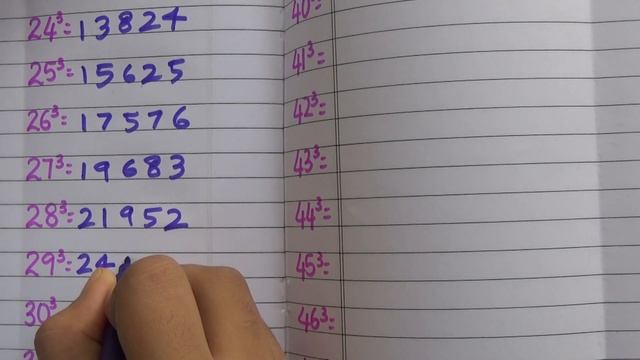 24³=13824
25³=15625
26³=17576
27³=19683
28³=21952
29³=24
30³
40³=
41³=
42³=
43³=
44³=
45³=
46³=